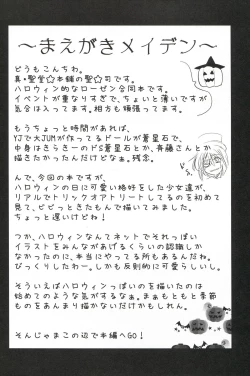 〜まえがきメイデン〜
どうもこんちわ。
真・聖堂☆本舗の聖☆司です。
ハロウィン的なローゼン合同本です。
イベントが重なりすぎで、ちょいと薄いですが
気合は入ってます。相方も頑張ってます。
もうちょっと時間があれば、
YJで大JUMが作ってるドールが蒼星石とで、
中身はきらきーのドS蒼星石とか、斉藤さんとか
描きたかったんだけどなぁ。残念。
んで、今回の本ですが、
ハロウィンの日に可愛い格好をした少女達が、
リアルでトリックオアトリートしてるのを初めて
見て、ビビっときたもんで描いてみました。
ちょっと遅いけどね！
つか、ハロウィンなんてネットでそれっぽい
イラストをみんながあげるくらいの認識しか
なかったのに、本当にやってる所もあるんだね。
びっくりしたわー。しかも反則的に可愛らしいし。
そういえばハロウィンっぽいものを描いたのは
始めてのような気がするなぁ。まぁもともと季節
ものをあんまり描かないだけかもしれん。
そんじゃまこの辺で本編へGO！